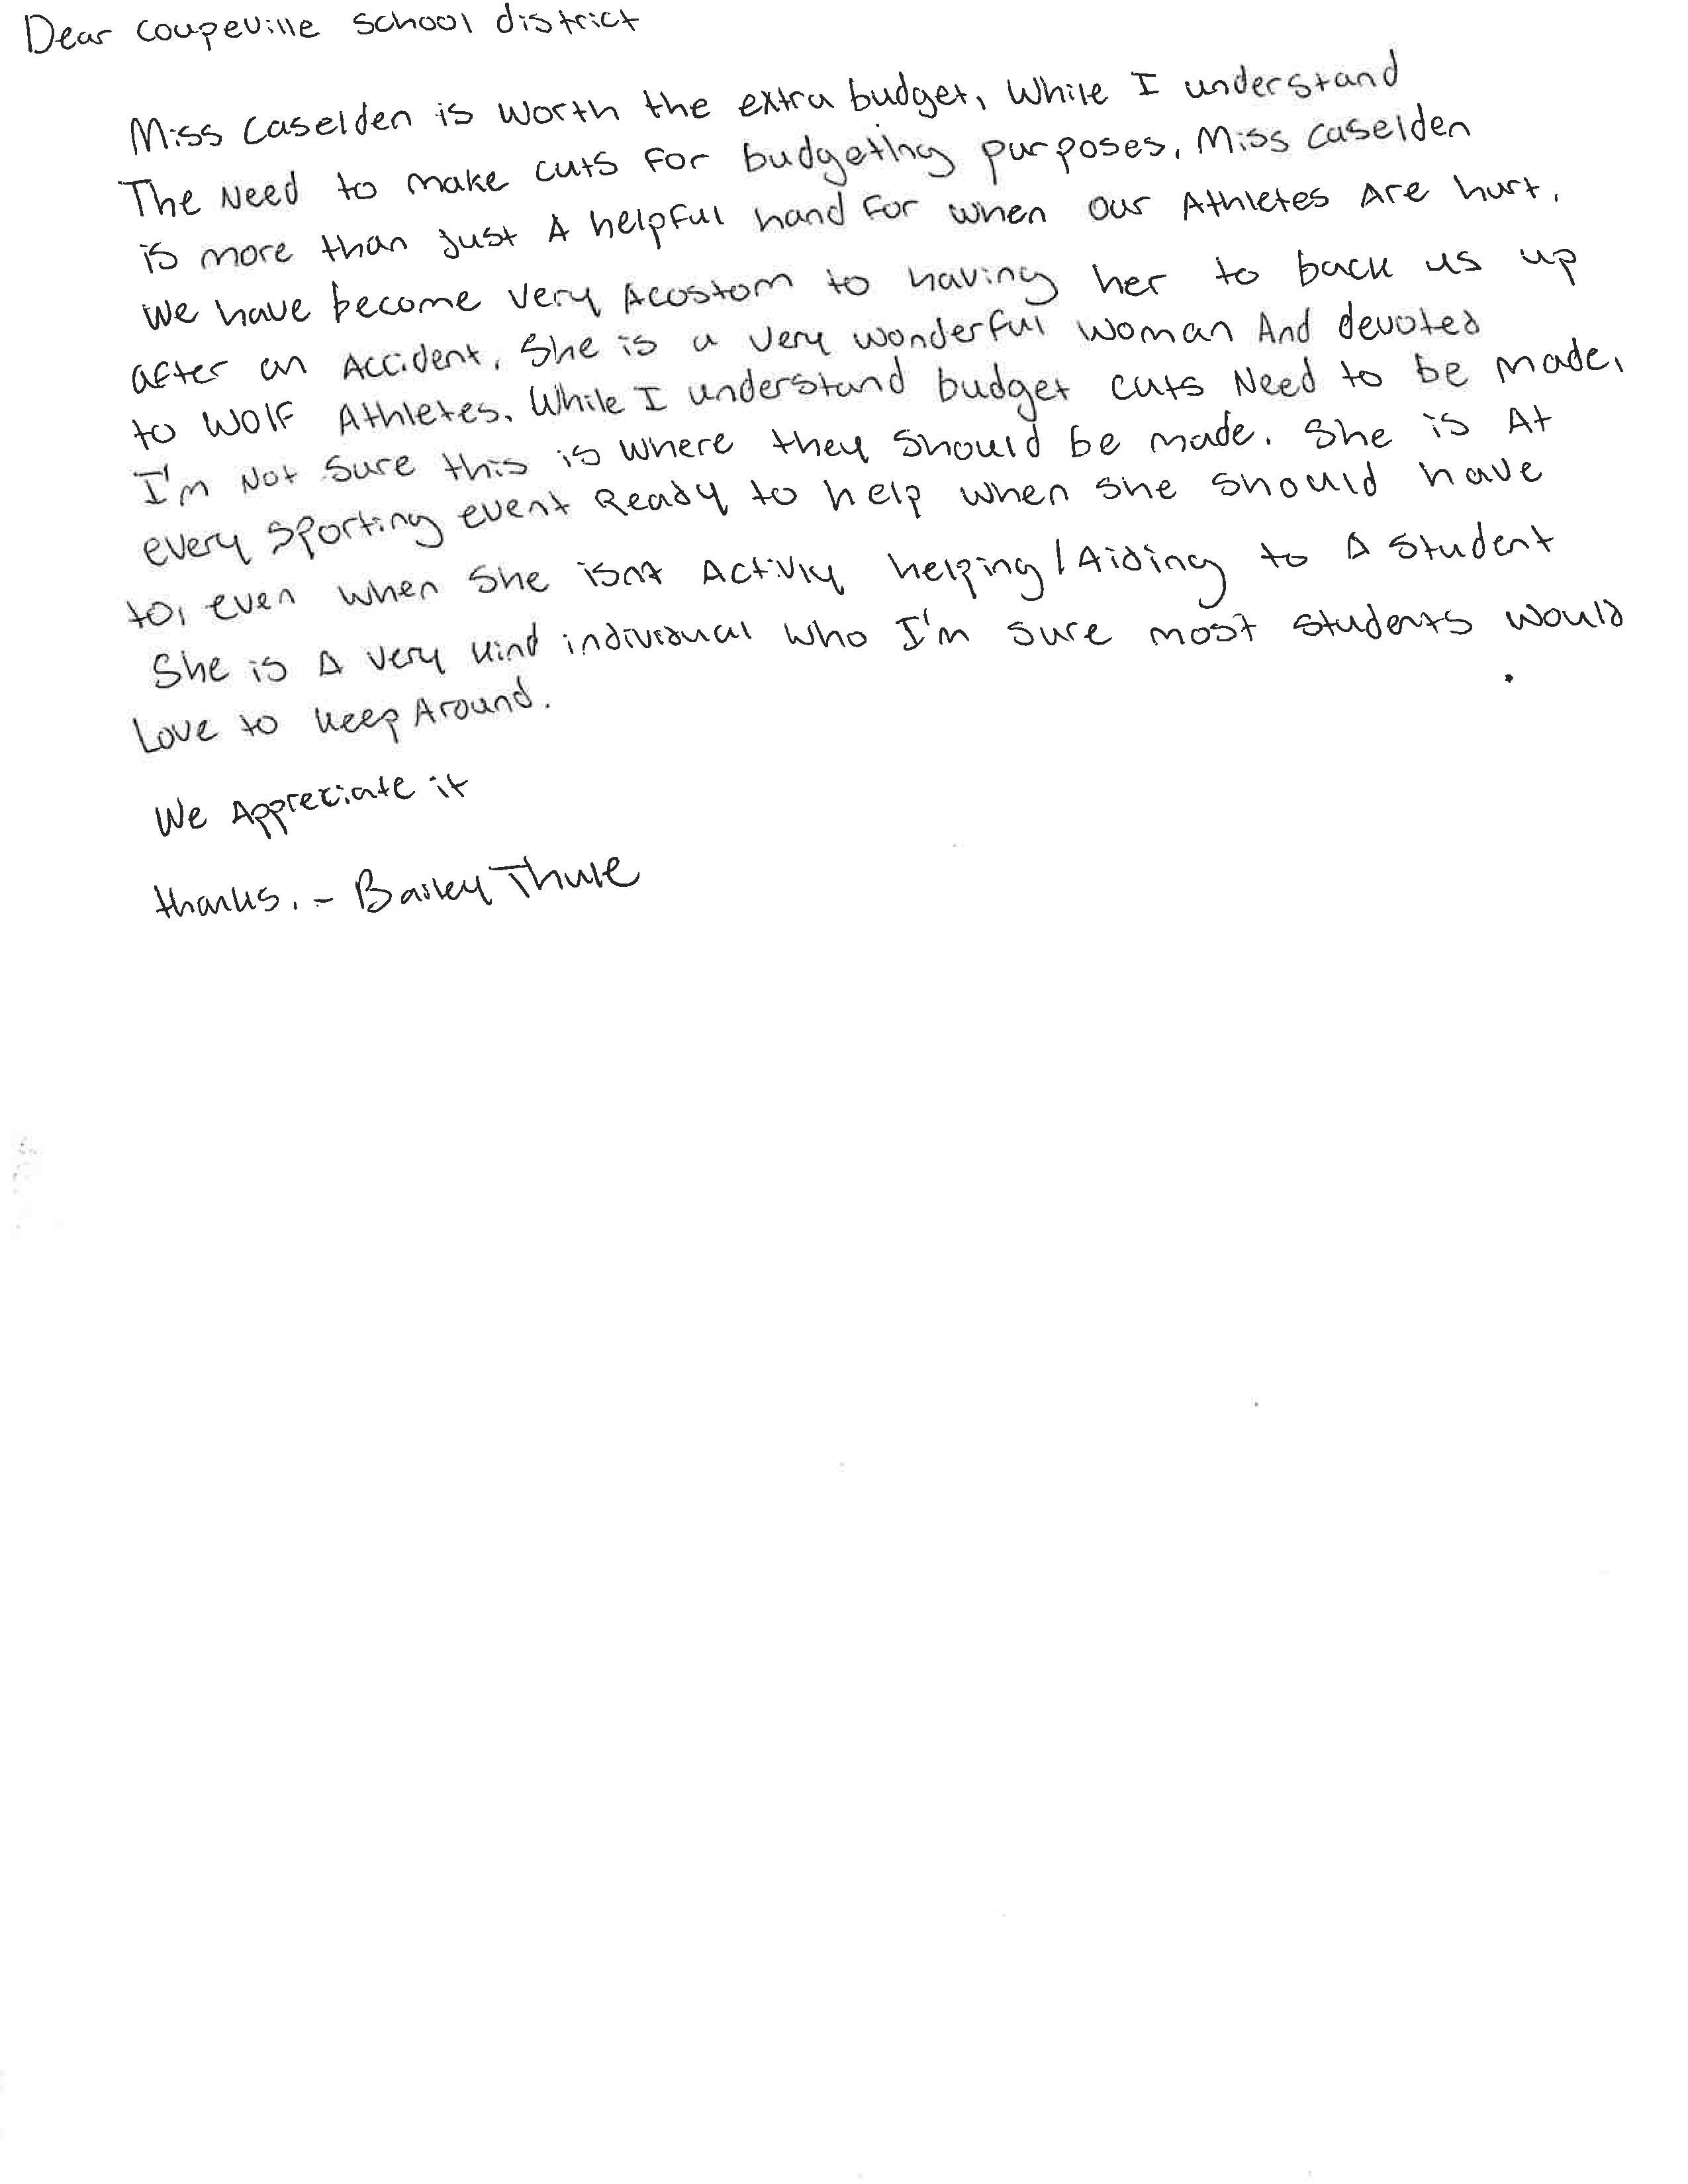 Dear Coupeville School district
Miss Caselden is worth the extra budget, While I understand
The Need to make cuts For budgeting purposes, Miss Caselden
is more than just A helpful hand For when our Athletes Are hurt.
We have become very Acostom to having her to back us up
after an Accident. She is a very wonderful woman And devoted
to Wolf Athletes. While I understand budget cuts Need to be made,
I'm Not sure this is where they should be made. She is At
every sporting event Ready to help when she should have
to, even when she isnt Activly helping/Aiding to A student
She is A very kind individual who I'm sure most students would
Love to keep Around.
We Appreciate it
thanks. - Bailey Thule